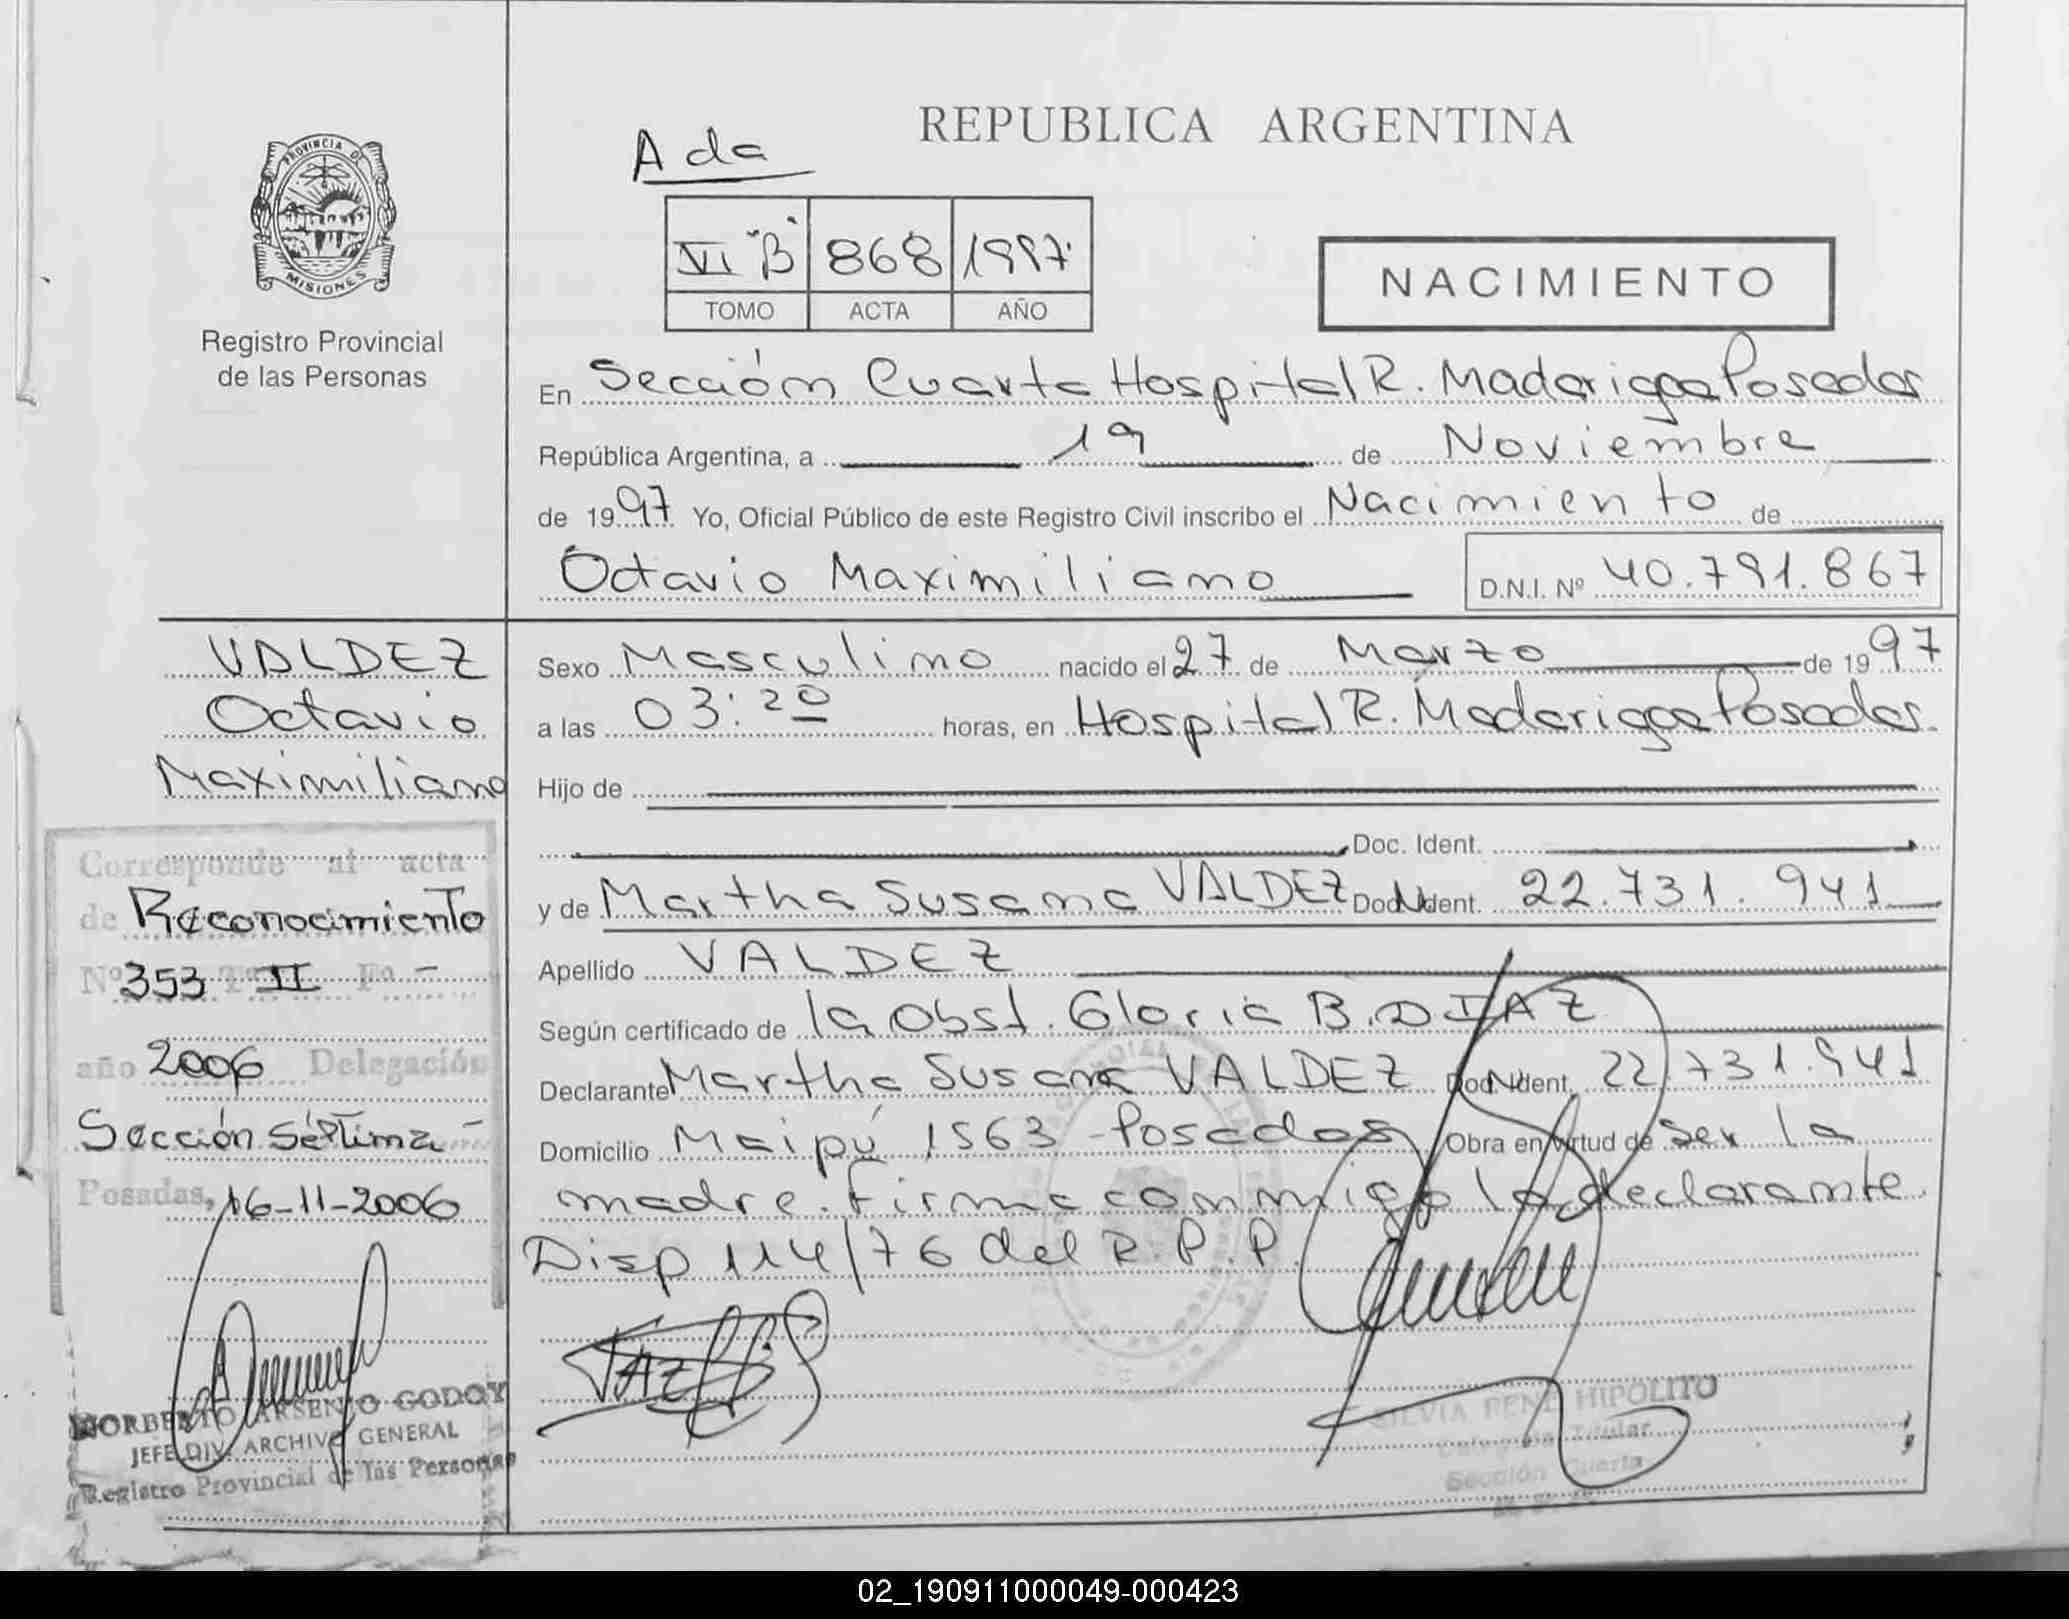 REPUBLICA ARGENTINA
Ada
PROVINCIA DE
MISIONES
Registro Provincial
de las Personas
VI "B" 868 1997
TOMO ACTA AÑO
NACIMIENTO
En Sección Cuarta Hospital R. Madariaga Posadas
República Argentina, a 19 de Noviembre
de 1997 Yo, Oficial Público de este Registro Civil inscribo el Nacimiento de
Octavio Maximiliano D.N.I. Nº 40.791.867
VALDEZ
Octavio
Maximiliano
Corresponde al acta
de Reconocimiento
Nº 353 Tº II Fº -
año 2006 Delegación
Sección Séptima -
Posadas, 16-11-2006
NORBERTO ARSENIO GODOY
JEFE DIV. ARCHIVO GENERAL
Registro Provincial de las Personas
Sexo Masculino nacido el 27 de Marzo de 1997
a las 03:20 horas, en Hospital R. Madariaga Posadas.
Hijo de
Doc. Ident.
y de Martha Susana VALDEZ Doc. Ident. 22.731.941
Apellido VALDEZ
Según certificado de la Obst. Gloria B. DIAZ
Declarante Martha Susana VALDEZ Doc. Ident. 22.731.941
Domicilio Maipú 1563 - Posadas Obra en virtud de ser la
madre. Firma conmigo la declarante.
Disp 114/76 del R.P.P.
HIPOLITO
Titular
Sección Cuarta
02_190911000049-000423